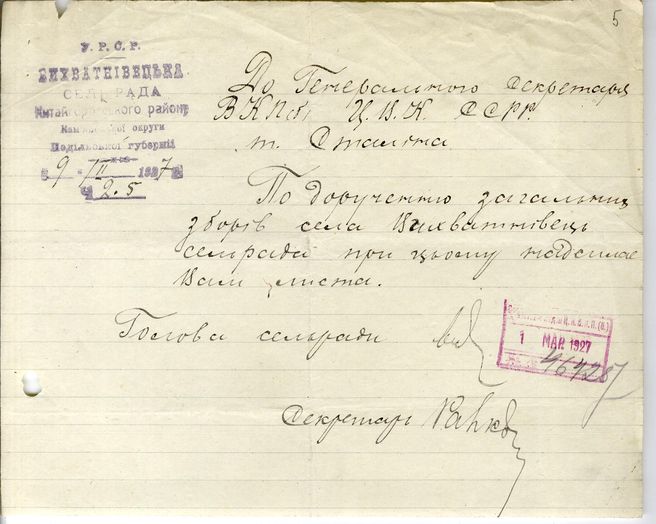 5
У. Р. С. Р.
ВИХВАТНІВЕЦЬКА
СЕЛЬРАДА
Китайгородського району
Кам'янецької округи
Подільської губернії
9 /II 1927 р.
№ 25
До Генерального Секретаря
ВКПб Ц.В.К. ССРР
т. Сталіна
По дорученню загальних
зборів села Вихватнівець
сельрада при цьому надсилає
Вам листа.
Голова сельради
1 МАР 1927
Секретарь